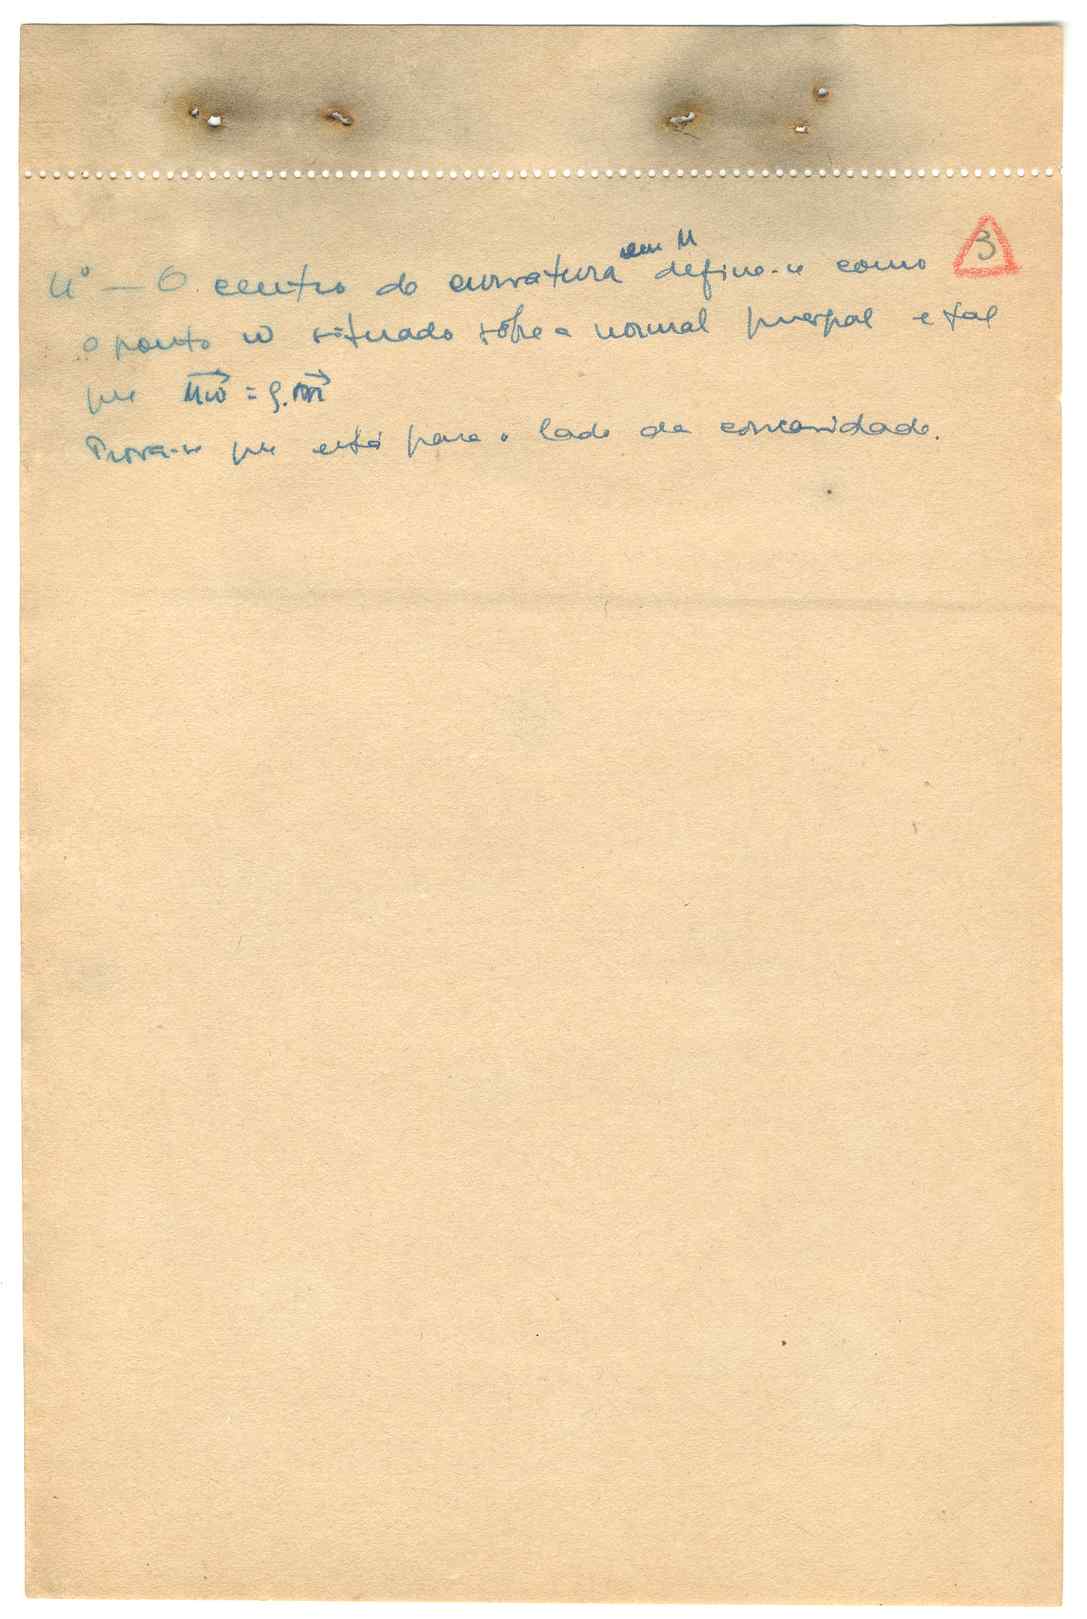 3
4º — O centro de curvatura em M define-se como
o ponto ω situado sôbre a normal principal e tal
que Mω = ρ.n
Prova-se que está para o lado da concavidade.